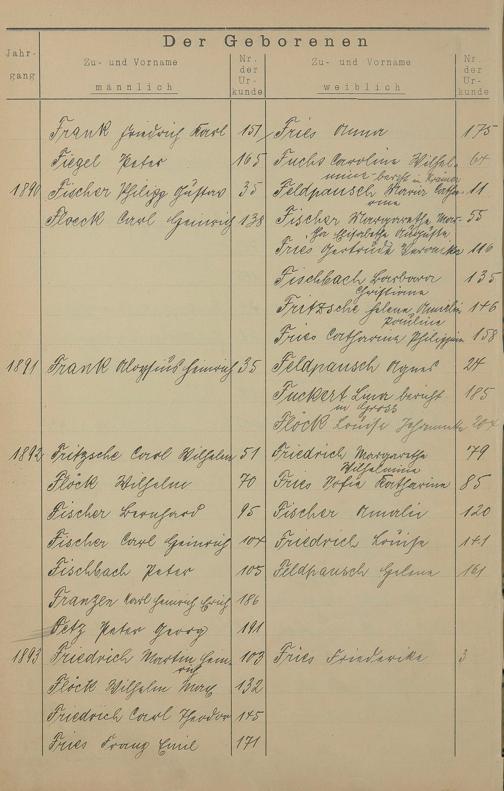 Der Geborenen
Jahr- Zu- und Vorname Nr. Zu- und Vorname Nr.
gang männlich der weiblich der
Ur- Ur-
kunde kunde
Frank Friedrich Karl 151 Fries Anna 175
Fiegel Peter 165 Fuchs Caroline Wilhel- 64
mine bericht. in Krämer
1890 Fischer Philipp Gustav 35 Feldpausch Maria Catha- 11
rina
Floeck Carl Heinrich 138 Fischer Margarethe Mar- 55
tha Elisabethe Auguste
Fries Gertrude Veronika 116
Fischbach Barbara 135
Christiane
Fritzsche Helene Amalie 146
Pauline
Fries Catharina Philippine 158
1891 Frank Aloysius Heinrich 35 Feldpausch Agnes 24
Fuckert Lina bericht 185
in Gross
Flöck Louise Johannette 204
1892 Fritzsche Carl Wilhelm 51 Friedrich Margarethe 79
Wilhelmine
Flöck Wilhelm 70 Fries Sofie Katharine 85
Fischer Bernhard 95 Fischer Amalie 120
Fischer Carl Heinrich 104 Friedrich Louise 141
Fischbach Peter 105 Feldpausch Helene 161
Franzen Karl Heinrich Erich 186
Fetz Peter Georg 191
1893 Friedrich Martin Hein- 103 Fries Friederike 3
rich
Flöck Wilhelm Max 132
Friedrich Carl Theodor 145
Fries Franz Emil 171